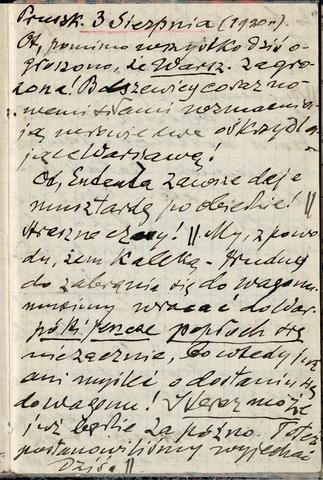 Pruszk. 3 Sierpnia (1920 r.).
Ot, pomimo wszystko dziś o-
głoszono, że Warsz. zagro-
żona! Bolszewicy coraz no-
wemi siłami wzmacnia-
ją
jące Warszawę!
Ot, Ententa zawsze daje
musztardę po obiedzie!
Straszne czasy! My, z powo-
du, żem kaleką - trudny
do zabrania się do wagonu
musimy wracać do War-
póki jeszcze popłoch się
nie zacznie, bo wtedy już
ani myśleć o dostaniu się
do wagonu! I teraz może
już będzie za późno. Toteż
postanowiliśmy wyjechać
Dziś.